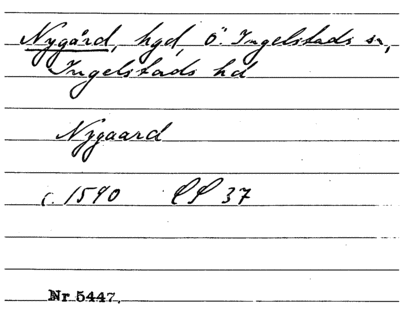 Nygård, hgd, Ö. Ingelstads sn,
Ingelstads hd
Nygaard
c. 1590 PP 37
Nr 5447.